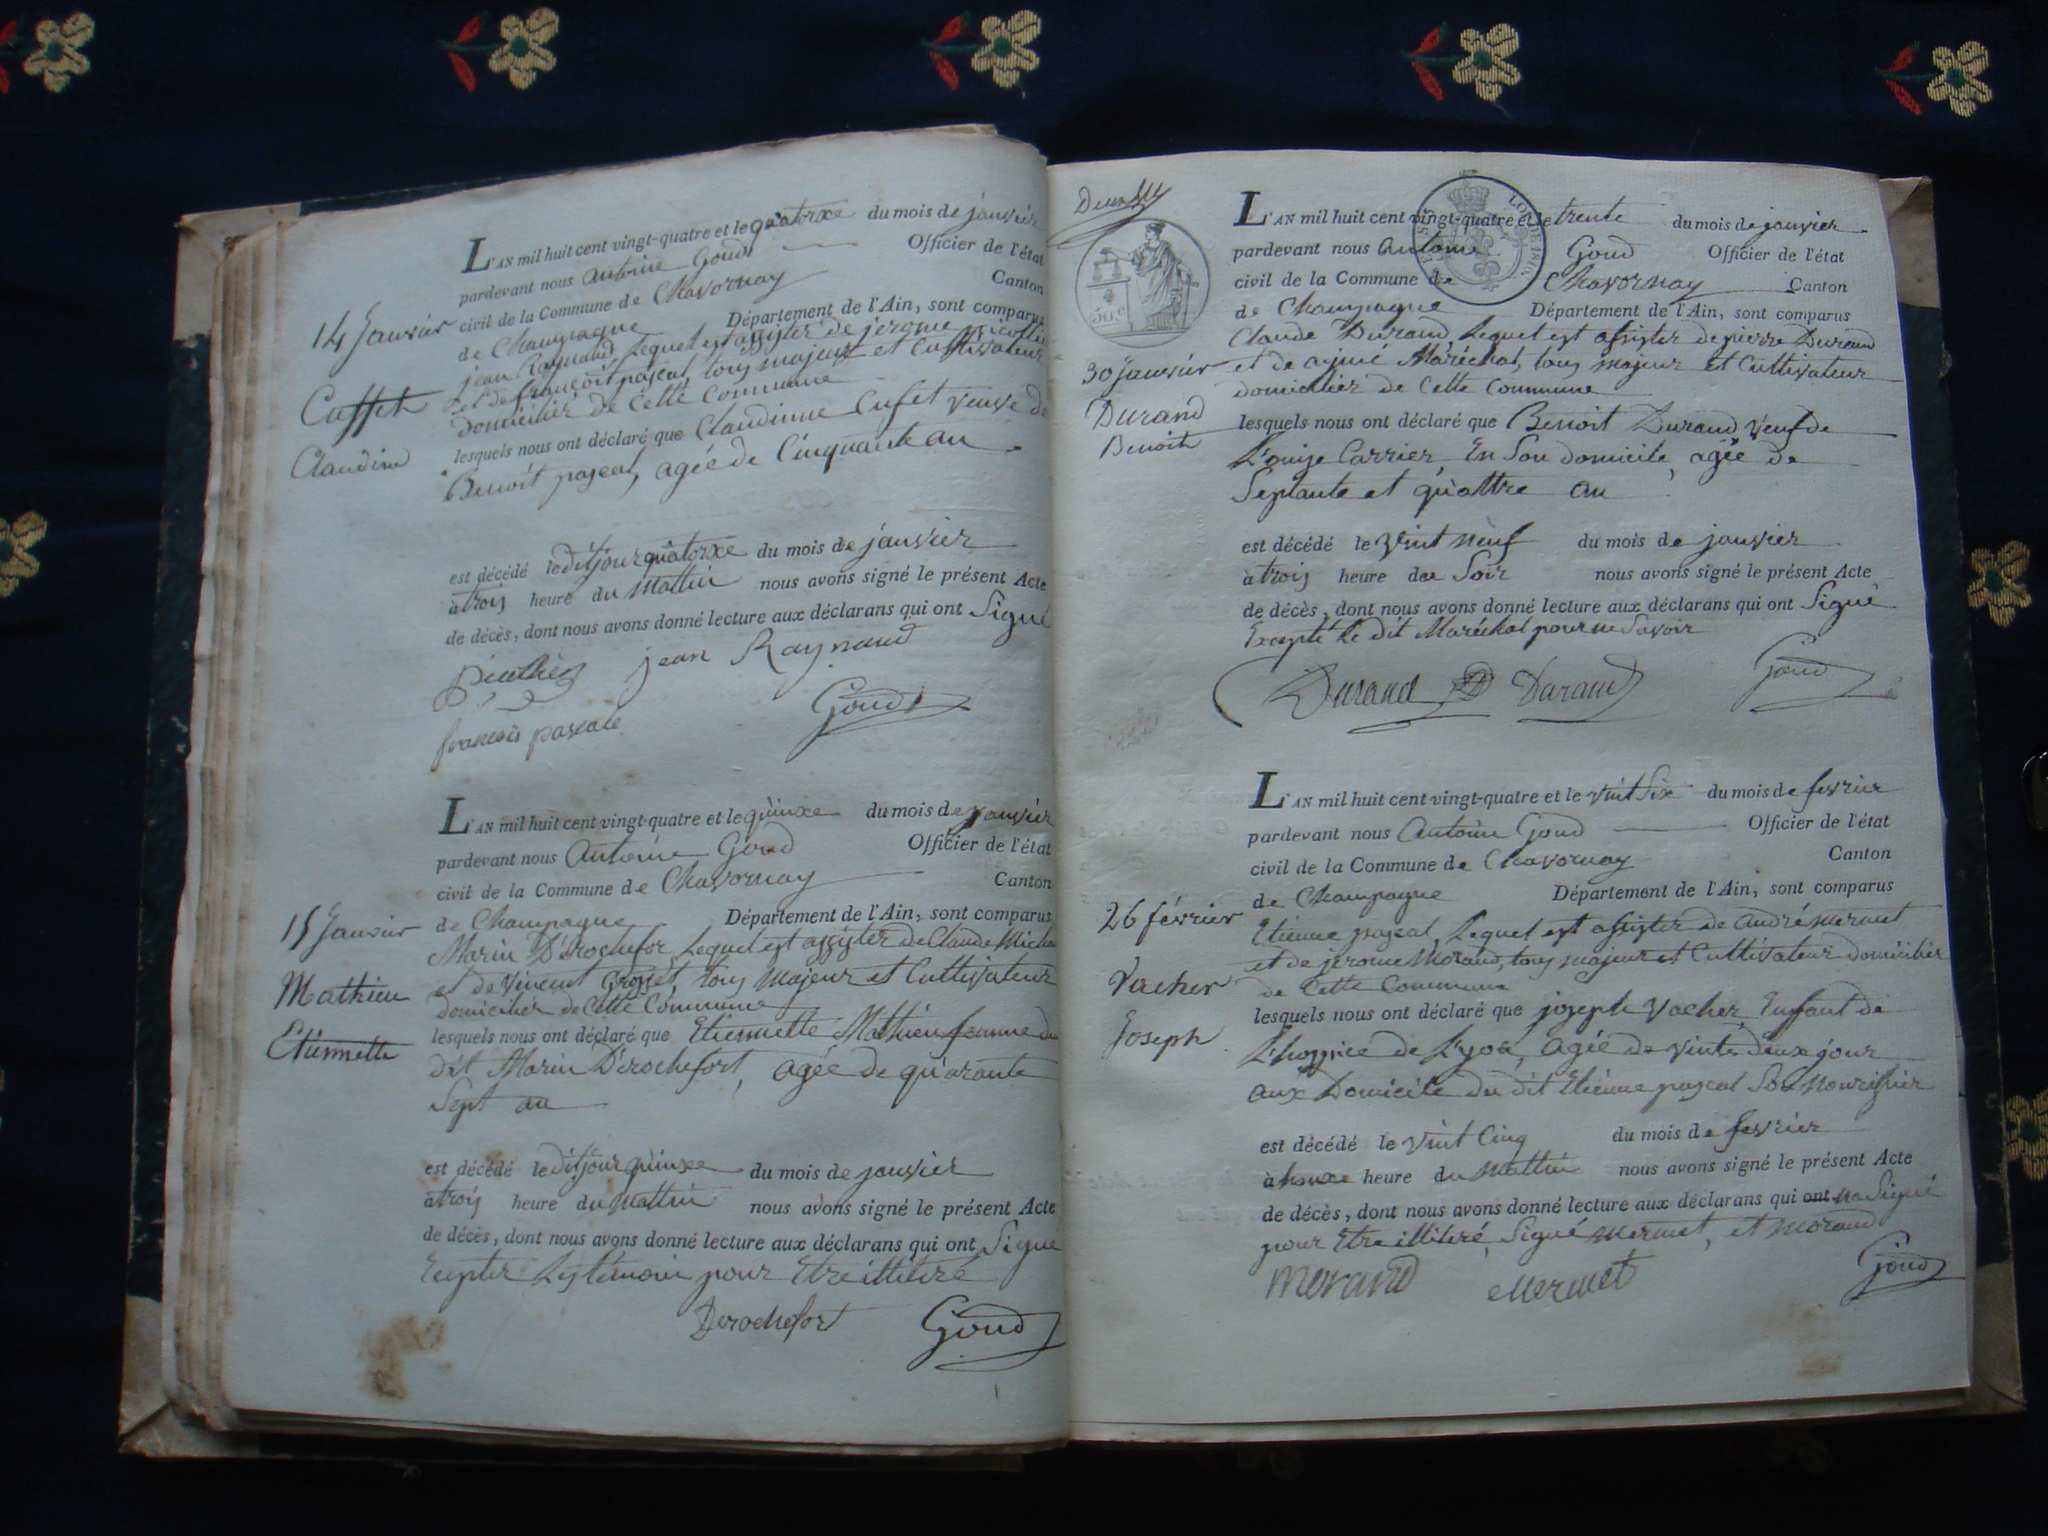 L'AN mil huit cent vingt-quatre et le quatorxe du mois de janvier
pardevant nous Antoine Goud Officier de l'état
civil de la Commune de Chavornay Canton
de Champagne Département de l'Ain, sont comparus
jean Raynaud Lequel est assister de jerome
et de françois pascal, tous majeur et Cultivateur
domicilier de Cette Commune
lesquels nous ont déclaré que Claudinne Cufet veuve de
Benoit pascal, agée de Cinquante an
14 Janvier
Cuffet
Claudine
est décédé le dit jour quatorxe du mois de janvier
à trois heure du Mattin nous avons signé le présent Acte
de décès, dont nous avons donné lecture aux déclarans qui ont Signé
jean Raynaud
françois pascale
Goud
L'AN mil huit cent vingt-quatre et le quinxe du mois de janvier
pardevant nous Antoine Goud Officier de l'état
civil de la Commune de Chavornay Canton
de Champagne Département de l'Ain, sont comparus
Marin Dérochefor, Lequel est assister de Claude Micha
et de Vincent Grosset, tous Majeur et Cultivateur
domicilier de Cette Commune
lesquels nous ont déclaré que Etiennette Mathieu femme du
dit Marin Dérochefort, agée de quarante
Sept an
15 Janvier
Mathieu
Etiennette
est décédé le dit jour quinxe du mois de janvier
à trois heure du Mattin nous avons signé le présent Acte
de décès, dont nous avons donné lecture aux déclarans qui ont Signé
pour Etre illitéré
Derochefort Goud
30 c
L'AN mil huit cent vingt-quatre et le trente du mois de janvier
pardevant nous Antoine Goud Officier de l'état
civil de la Commune de Chavornay Canton
de Champagne Département de l'Ain, sont comparus
Claude Durand Lequel est assister de pierre Durand
et de aymé Maréchal, tous majeur et Cultivateur
domicilier de Cette Commune
lesquels nous ont déclaré que Benoit Durand veuf de
L'ouise Carrier, En Son domicile, agée de
Septante et quattre an
30 Janvier
Durand
Benoit
est décédé le Vint neuf du mois de janvier
à trois heure du Soir nous avons signé le présent Acte
de décès, dont nous avons donné lecture aux déclarans qui ont Signé
Excepté Le dit Maréchal pour ne Savoir
Durand Durand Goud
L'AN mil huit cent vingt-quatre et le vint Six du mois de fevrier
pardevant nous Antoine Goud Officier de l'état
civil de la Commune de Chavornay Canton
de Champagne Département de l'Ain, sont comparus
Etienne pascal, Lequel est assister de andré mermet
et de jérome Morand, tous majeur et Cultivateur domicilier
de Cette Commune
lesquels nous ont déclaré que joseph Vacher, Enffant de
L'hospice de L'yon, agée de vinte deux jour
aux Domicile du dit Etienne pascal Son nourissier
26 février
Vacher
Joseph
est décédé le Vint Cinq du mois de fevrier
à honxe heure du Mattin nous avons signé le présent Acte
de décès, dont nous avons donné lecture aux déclarans qui ont na Signé
pour Etre illitéré, Signé Mermet, et Morand
Morand Mermet Goud